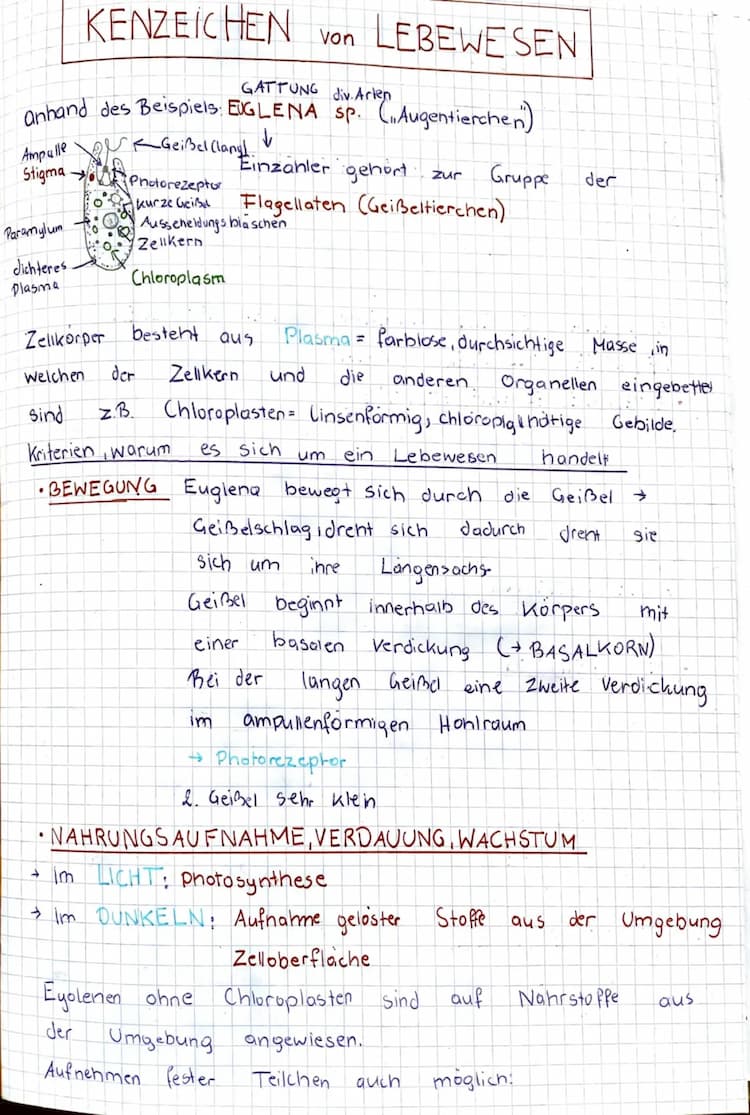 KENZEICHEN von LEBEWESEN
GATTUNG div. Arten
anhand des Beispiels: EUGLENA sp. („Augentierchen")
Ampulle
Geißel (lang)
Stigma
Einzähler gehört zur Gruppe der
Photorezeptor
kurze Geißel
Flagellaten (Geißeltierchen)
Paramylum
Ausscheidungsbläschen
Zellkern
dichteres
Plasma
Chloroplasm
Zellkörper besteht aus Plasma = farblose, durchsichtige Masse, in
welchen der Zellkern und die anderen Organellen eingebettet
sind z.B. Chloroplasten = linsenförmig, Gebilde.
Kriterien, warum es sich um ein Lebewesen handelt
• BEWEGUNG Euglena bewegt sich durch die Geißel →
Geißelschlag, dreht sich dadurch dreht sie
sich um ihre Längensachs
Geißel beginnt innerhalb des Körpers mit
einer basalen Verdickung (→ BASALKORN)
Bei der langen Geißel eine zweite Verdickung
im ampullenförmigen Hohlraum
→ Photorezeptor
2. Geißel sehr klein
• NAHRUNGSAUFNAHME, VERDAUUNG, WACHSTUM
→ Im LICHT: Photosynthese
→ Im DUNKELN: Aufnahme gelöster Stoffe aus der Umgebung
Zelloberfläche
Eyolenen ohne Chloroplasten sind auf Nährstoffe aus
der Umgebung angewiesen.
Aufnehmen fester Teilchen auch möglich: